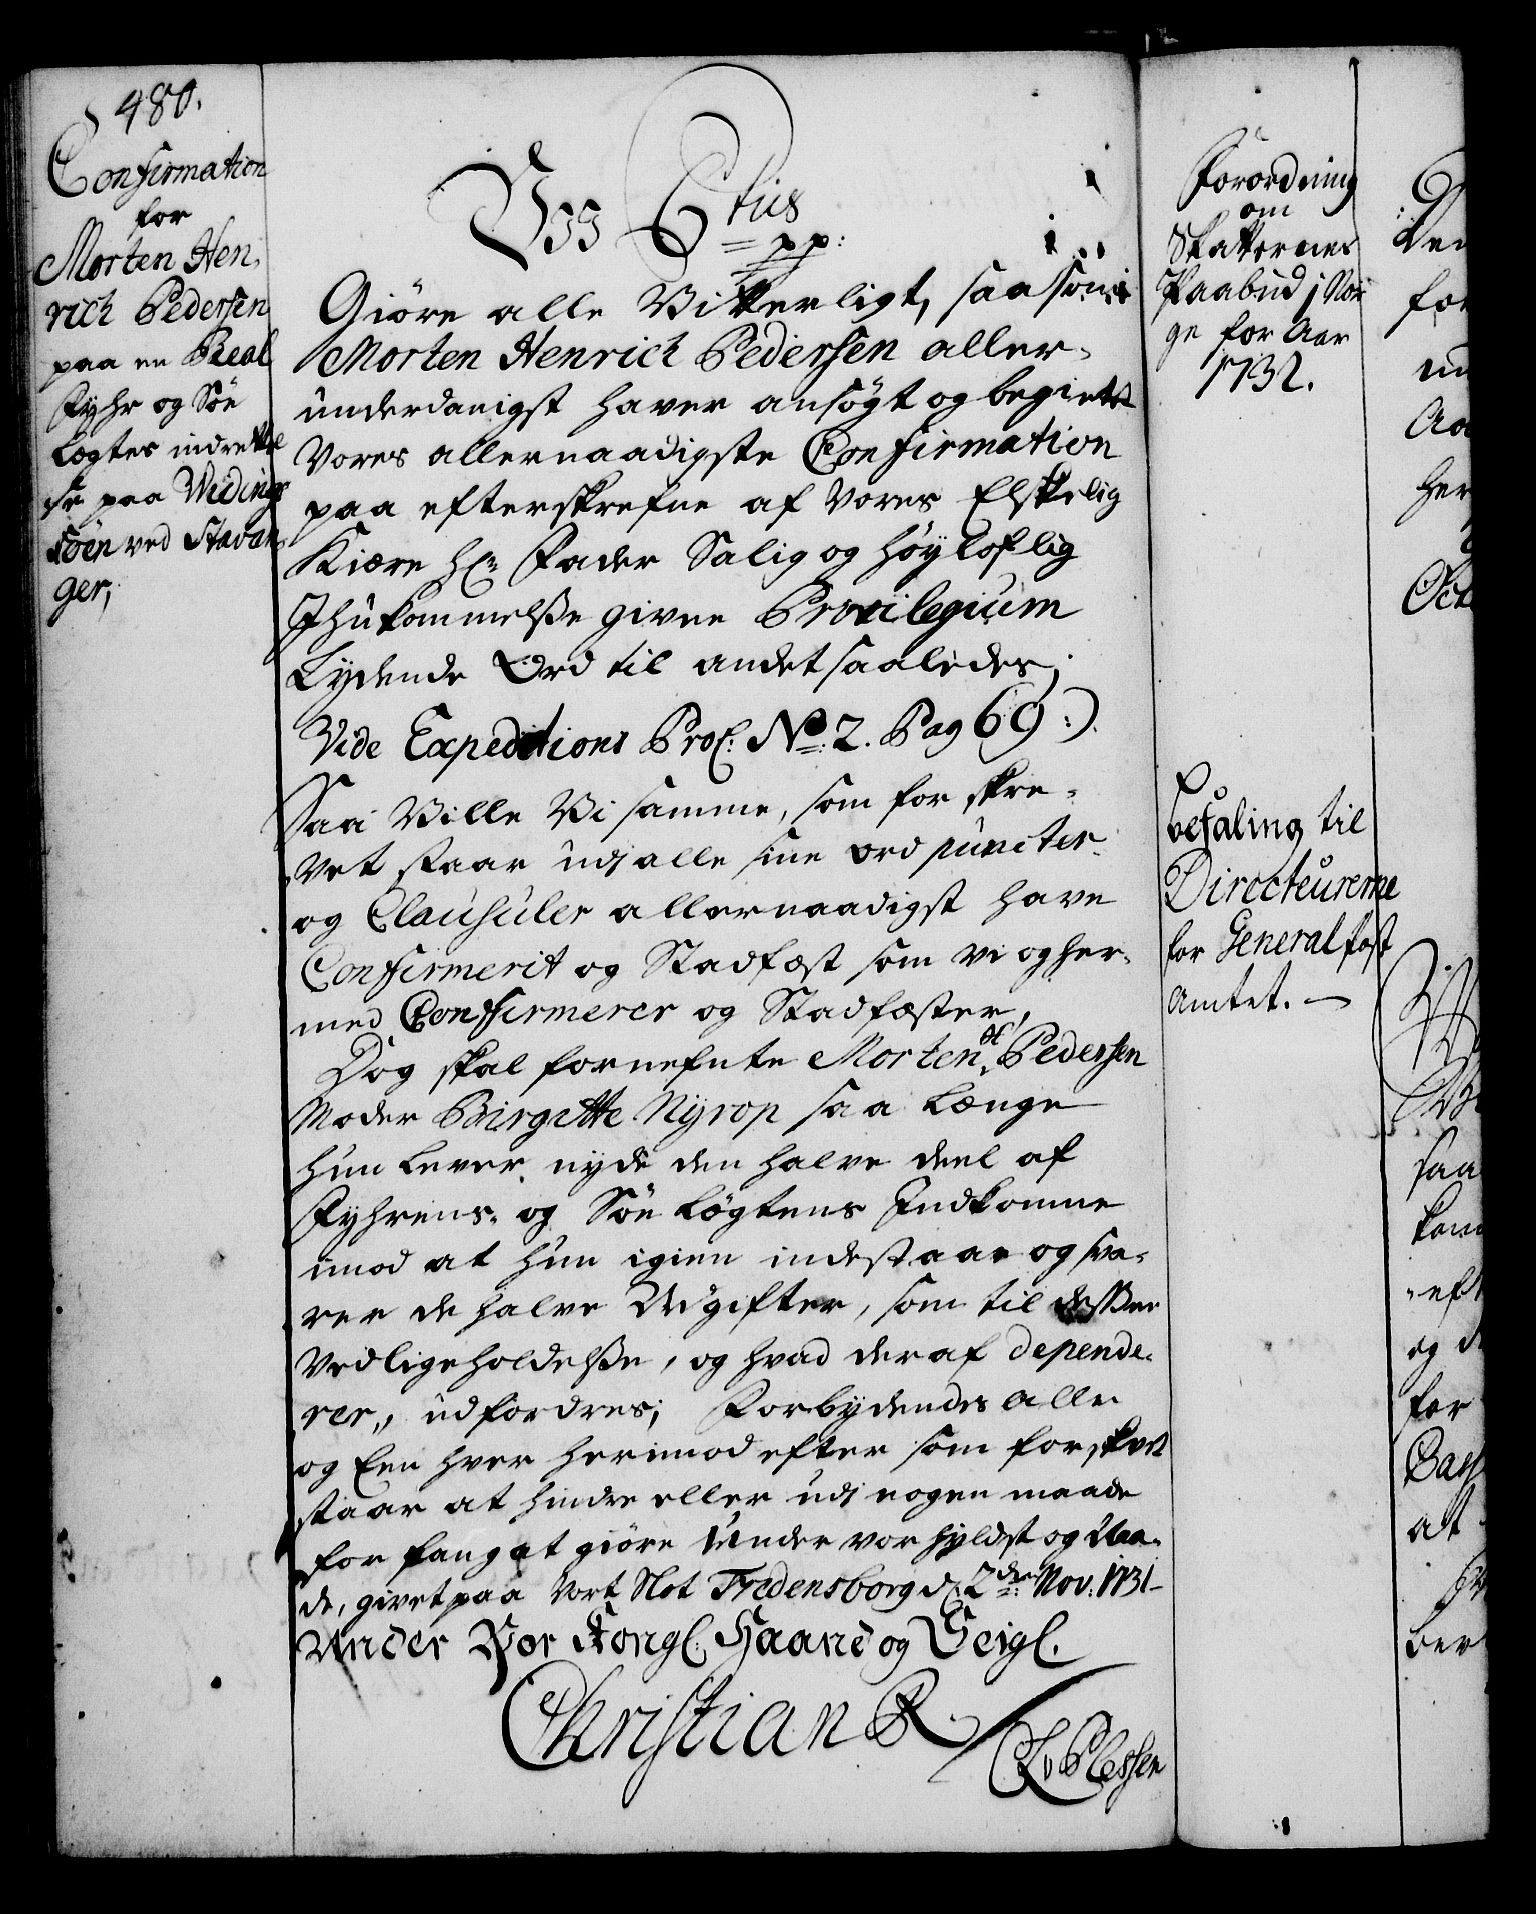 480.
Confirmation
for
Morten Hen,
rich Pedersen
paa en Real
Fyhr og Söe
Lögtes indrettel
se paa Widings
söen ved Stavan,
ger,
Vii Ctus
pp:
Giöre alle Vitterligt, saasom
Morten Henrich Pedersen aller,
underdanigst haver ansögt og begiert
Vores allernaadigste Confirmation
paa efterskrefne af Vores Elskelig
Kiære Hr Fader Salig og Höyloflig
Ihukommelsse givne Privilegium
Lydende Ord til andet saaledes;
Vide Expeditions Prol: No: 2. Pag 69:).
Saa Ville Vi samme, som for skre,
vet staar udj alle sine ord puncter
og Clausuler allernaadigst have
Confirmerit og Stadfæst som vi og her,
med Confirmerer og Stadfæster,
Dog skal fornefnte Morten H Pedersen
Moder Birgitte Nyrop saa Længe
hun Lever nyde den halve deel af
Fyhrens, og Söe Lögtens Indkomme
imod at hun igien indestaar og sva,
rer de halve Udgifter, som til desssen
Vedligeholdelsse, og hvad deraf depende,
rer, udfordres; Forbydendes alle
og Een hver herimod efter som forskvet
staar at hindre eller udj nogen maade
for fang at giöre Under vor hyldst og Naa,
de, givet paa Vort Slot Fredensborg d: 2den Nov. 1731
Under Vor Kongl. Haand og Seigl.
Christian R.
CLvPlessen
Forordning
om
Skatternes
Paabud j Nor
ge for Aar
1732.
befaling til
Directeurerne
for General post
Amtet. —
for
Aa
her
Oct
saa
eft
og
for
at
ber